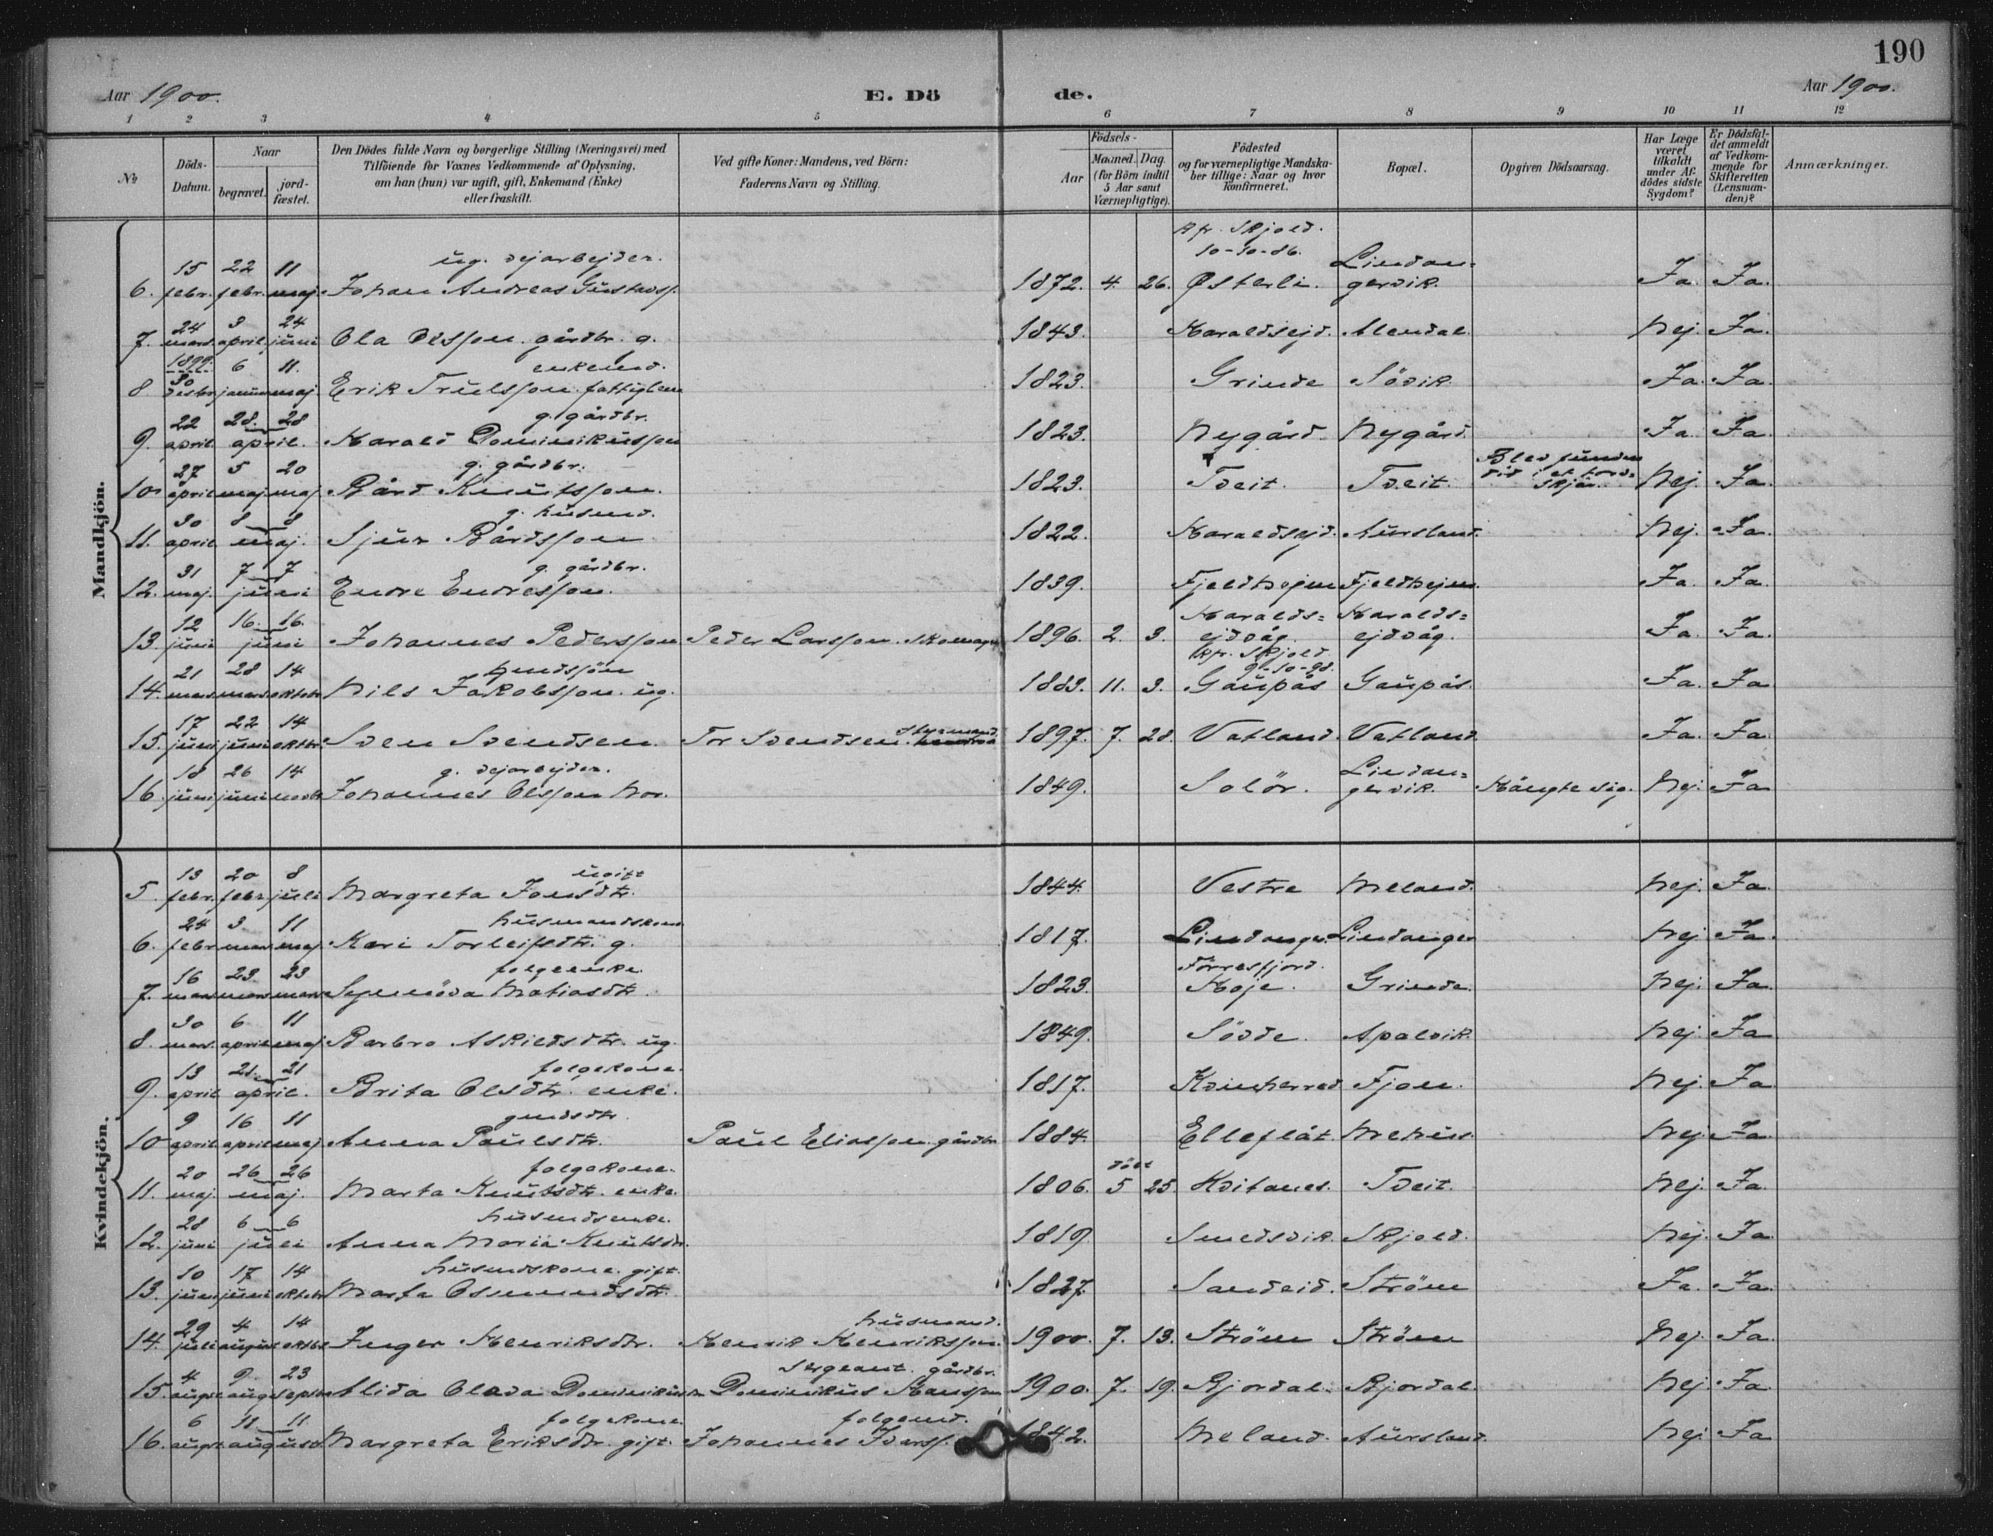 190
Aar 1900.
E. Döde.
Aar 1900.
1 2 3 4 5 6 7 8 9 10 11 12
No
Döds-Datum.
Naar
begravet.
jord-fæstet.
Den Dödes fulde Navn og borgerlige Stilling (Næringsvei) med
Tilföiende for Voxnes Vedkommende af Oplysning,
om han (hun) var ugift, gift, Enkemand (Enke)
eller fraskilt.
Ved gifte Koner: Mandens, ved Börn:
Faderens Navn og Stilling.
Födsels-
Aar
Maaned. Dag.
(for Börn indtil
5 Aar samt
Værnepligtige).
Födested
og for værnepligtige Mandska-
ber tillige: Naar og hvor
Konfirmeret.
Bopæl.
Opgiven Dödsaarsag.
Har Læge
været
tilkaldt
under Af-
dödes sidste
Sygdom?
Er Dödsfal-
det anmeldt
af Vedkom-
mende for
Skifteretten
(Lensman-
den)?
Anmærkninger.
Mandkjön.
6. 15 febr. 22 febr. 11 maj. Johan Andreas Gustavs. ug. dejarbejder. 1872. 4. 26. Østerli. Kfr. Skjold. 10-10-86. Lindangervik. Ja. Ja.
7. 24 mars. 3 april 24 juni Ola Olsson. gårdbr. g. 1843. Haraldsejd. Alendal. Nej. Ja.
8 1899. 30 desbr. 6 11. maj. Erik Trulsson enkemd. 1823. Grinde Sövik Ja. Ja.
9. 22 april 28. 28 april. Harald Dominikusson g. gårdbr. 1823. Nygård. Nygård. Ja. Ja.
10. 27 april 5 maj 20 maj Bård Knutsson. g. gårdbr. 1823. Tveit. Tveit. Blev funden Nej. Ja.
11. 30 april 8 8 maj. Sjur Bårdsson g. husmd. 1822. Haraldsejd. Aursland. Nej. Ja.
12. 31 maj. 7 7 juni Endre Endresson. g. gårdbr. 1839. Fjeldhejm Fjeldhejm. Ja. Ja.
13. 12 juni 16. 16. juni Johannes Pedersson Peder Larsson. Skomager 1896. 2. 3. Haraldsejdvåg. Haraldsejdvåg. Ja. Ja.
14. 21 mars 28 mars 14 oktobr Nils Jakobsson. ug. 1883. 11. 3. Kfr. Skjold 9-10-98. Gaupås Gaupås. Ja. Ja.
15. 17 juni 22 juni 14 oktbr Sven Svendsen. Tor Svendsen. Styrmand. 1897. 7. 28. Vatland. Vatland. Ja. Ja.
16. 18 juni 26 juni 14 Johannes Olsson g. dejarbejder. 1849. Solör. Lindangervik. Hängte sig. Nej. Ja
Kvindekjön.
5. 13 febr. 20 febr. 8 juli Margreta Jonsdtr. ugift 1844. Vestre Meland. Nej. Ja.
6. 24 febr. 3. mars 11 maj. Kari Torleifsdtr. g. husmandskone 1817. Lindanger. Lindanger Nej Ja.
7. 16 mars 23. mars 23 mars Symnöva Matiasdtr. folgeenke. 1823. Förresfjord. Grinde. Nej. Ja
8. 30 mars. 6 april 11 maj. Barbro Askildsdtr. ug. 1849. Sövde. Apalvik. Nej. Ja
9. 13 april 21. 21 april. Brita Olsdtr. enke. folgekone. 1817. Kvinherred Fjon. Nej. Ja
10 9 april 16 april 11 maj. Anna Paulsdtr. Paul Eliasson. gårdbr 1884. Elleflåt. Mehus. Nej. Ja.
11. 20 maj. 26 26 maj. Marta Knutsdtr. enke. folgekone. 1806. döbt 5 25 Hvitanes. Tveit. Nej. Ja.
12. 28 juni 6 6 juli Anna Maria Knutsdtr. husmdsenke. 1819 Smedsvik. Skjold. Nej. Ja.
13. 10 juni 17 juni 14 oktobr Marta Osmundsdtr. husmdskone. gift. 1827. Sandeid. Ström Ja. Ja.
14. 29 juli 4 august 14 oktbr Inger Henriksdtr. Henrik Henriksson. husmand. 1900. 7. 13. Ström Ström Nej. Ja.
15. 4 august 9. aug. 23 septbr Alida Olava Dominikusdtr. Dominikus Hansson Sergeant. gårdbr. 1900. 7. 19. Bjordal. Bjordal. Nej. Ja
16. 6 august 11 11. august. Margreta Eriksdtr. gift. folgekone. Johannes Ivarss. folgemd. 1842. Meland. Aursland. Nej. Ja